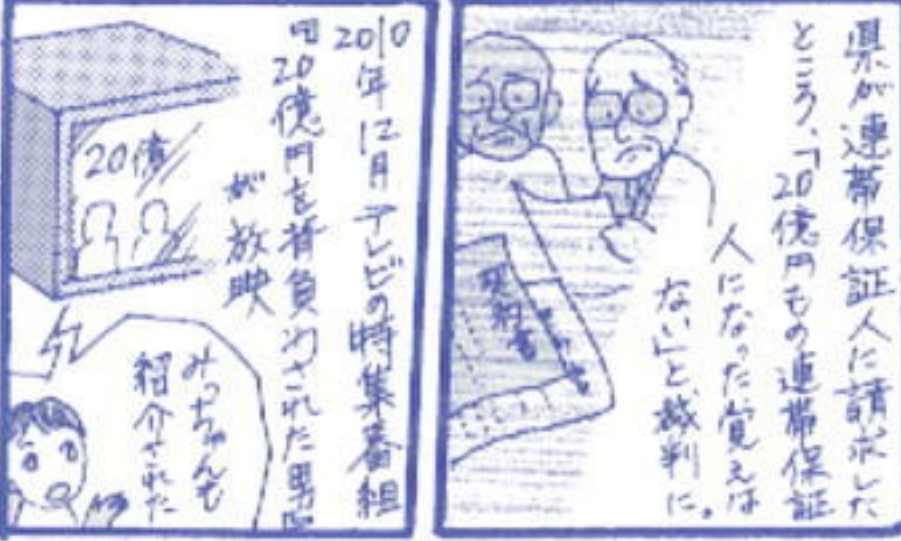 県が連帯保証人に請求した
ところ、「20億円もの連帯保証
人になった覚えは
ない」と、裁判に。
契約書
2010年12月テレビの特集番組
「20億円を背負わされた男」
が放映
20億
みっちゃんも
紹介された